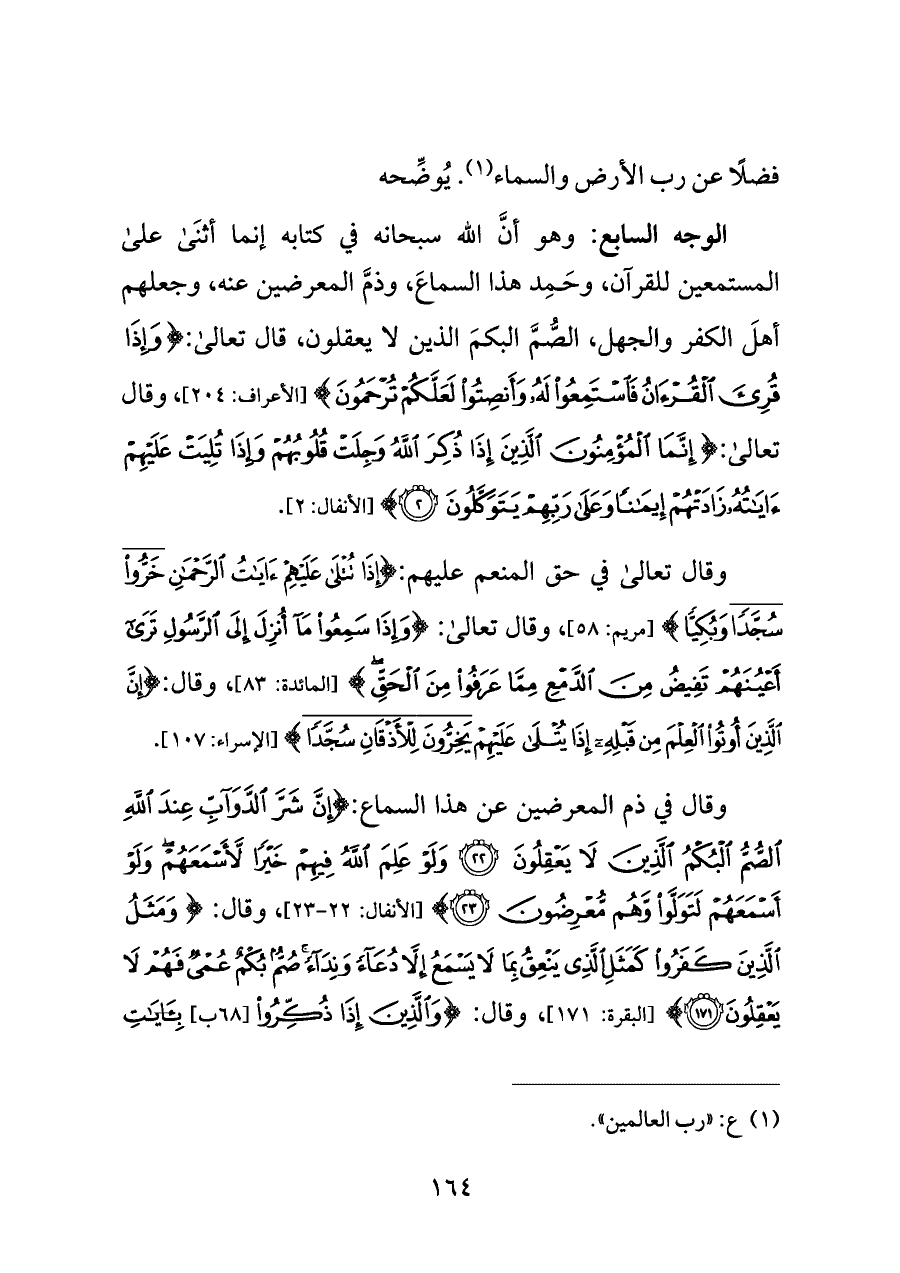 فضلًا عن رب الأرض والسماء(١). يُوضِّحه
الوجه السابع: وهو أنَّ الله سبحانه في كتابه إنما أثنَىٰ علىٰ
المستمعين للقرآن، وحَمِد هذا السماعَ، وذمَّ المعرضين عنه، وجعلهم
أهلَ الكفر والجهل، الصُّمَّ البكمَ الذين لا يعقلون، قال تعالىٰ: ﴿وَإِذَا
قُرِئَ ٱلْقُرْءَانُ فَٱسْتَمِعُوا۟ لَهُۥ وَأَنصِتُوا۟ لَعَلَّكُمْ تُرْحَمُونَ﴾ [الأعراف: ٢٠٤]، وقال
تعالىٰ: ﴿إِنَّمَا ٱلْمُؤْمِنُونَ ٱلَّذِينَ إِذَا ذُكِرَ ٱللَّهُ وَجِلَتْ قُلُوبُهُمْ وَإِذَا تُلِيَتْ عَلَيْهِمْ
ءَايَٰتُهُۥ زَادَتْهُمْ إِيمَٰنًا وَعَلَىٰ رَبِّهِمْ يَتَوَكَّلُونَ ٢﴾ [الأنفال: ٢].
وقال تعالىٰ في حق المنعم عليهم: ﴿إِذَا تُتْلَىٰ عَلَيْهِمْ ءَايَٰتُ ٱلرَّحْمَٰنِ خَرُّوا۟
سُجَّدًا وَبُكِيًّا﴾ [مريم: ٥٨]، وقال تعالىٰ: ﴿وَإِذَا سَمِعُوا۟ مَآ أُنزِلَ إِلَى ٱلرَّسُولِ تَرَىٰٓ
أَعْيُنَهُمْ تَفِيضُ مِنَ ٱلدَّمْعِ مِمَّا عَرَفُوا۟ مِنَ ٱلْحَقِّ ۖ﴾ [المائدة: ٨٣]، وقال: ﴿إِنَّ
ٱلَّذِينَ أُوتُوا۟ ٱلْعِلْمَ مِن قَبْلِهِۦٓ إِذَا يُتْلَىٰ عَلَيْهِمْ يَخِرُّونَ لِلْأَذْقَانِ سُجَّدًا﴾ [الإسراء: ١٠٧].
وقال في ذم المعرضين عن هذا السماع: ﴿إِنَّ شَرَّ ٱلدَّوَآبِّ عِندَ ٱللَّهِ
ٱلصُّمُّ ٱلْبُكْمُ ٱلَّذِينَ لَا يَعْقِلُونَ ٢٢ وَلَوْ عَلِمَ ٱللَّهُ فِيهِمْ خَيْرًا لَّأَسْمَعَهُمْ ۖ وَلَوْ
أَسْمَعَهُمْ لَتَوَلَّوا۟ وَّهُم مُّعْرِضُونَ ٢٣﴾ [الأنفال: ٢٢-٢٣]، وقال: ﴿وَمَثَلُ
ٱلَّذِينَ كَفَرُوا۟ كَمَثَلِ ٱلَّذِى يَنْعِقُ بِمَا لَا يَسْمَعُ إِلَّا دُعَآءً وَنِدَآءً ۚ صُمٌّۢ بُكْمٌ عُمْىٌ فَهُمْ لَا
يَعْقِلُونَ ١٧١﴾ [البقرة: ١٧١]، وقال: ﴿وَٱلَّذِينَ إِذَا ذُكِّرُوا۟ [٦٨ب] بِـَٔايَٰتِ
(١) ع: «رب العالمين».
١٦٤